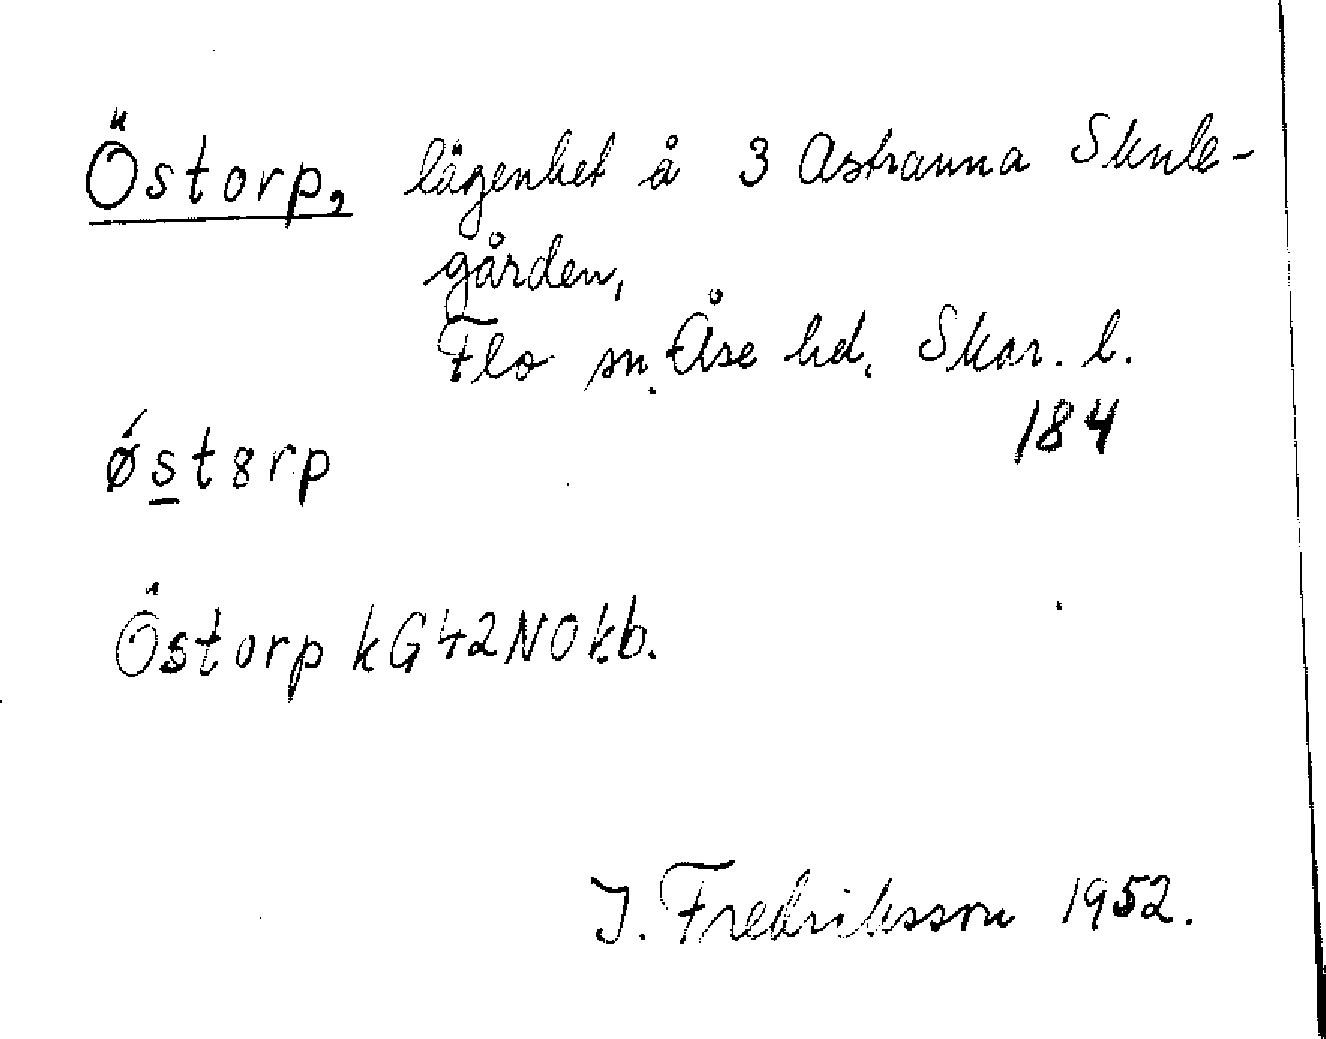 Östorp, lägenhet å 3 Astranna Skule-
gården,
Flo sn. Åse hd. Skar. l.
184
ǿst8rp
Östorp kG42NOkb.
J. Fredriksson 1952.